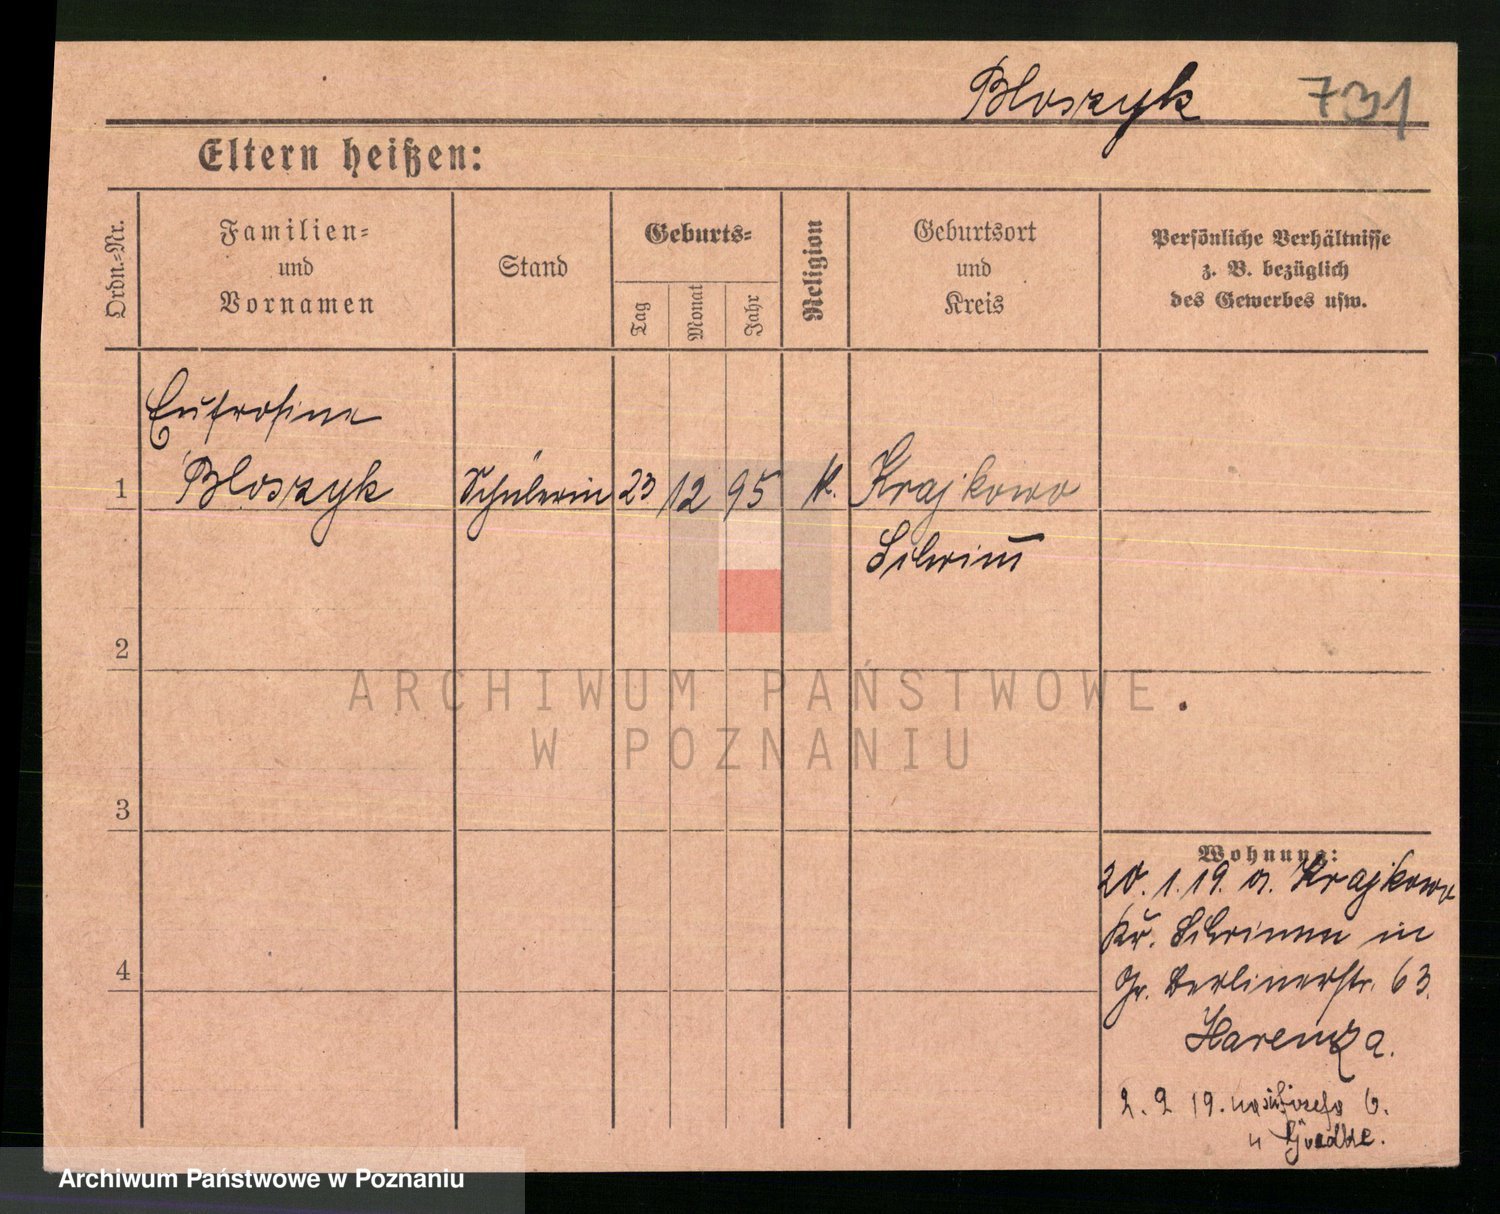 Bloszyk 731
Eltern heißen:
Ordn.-Nr.
Familien-
und
Vornamen
Stand
Geburts-
Tag
Monat
Jahr
Religion
Geburtsort
und
Kreis
Persönliche Verhältnisse
z. B. bezüglich
des Gewerbes usw.
Eufrosine
1 Bloszyk Schülerin 23 12 95 k. Krajkowo
Schrimm
2
ARCHIWUM PAŃSTWOWE
W POZNANIU
3
Wohnung:
20. 1. 19. a. Krajkowo
Kr. Schrimm in
Gr. Berlinerstr. 63.
4
Harenza.
2. 2 19.
Archiwum Państwowe w Poznaniu